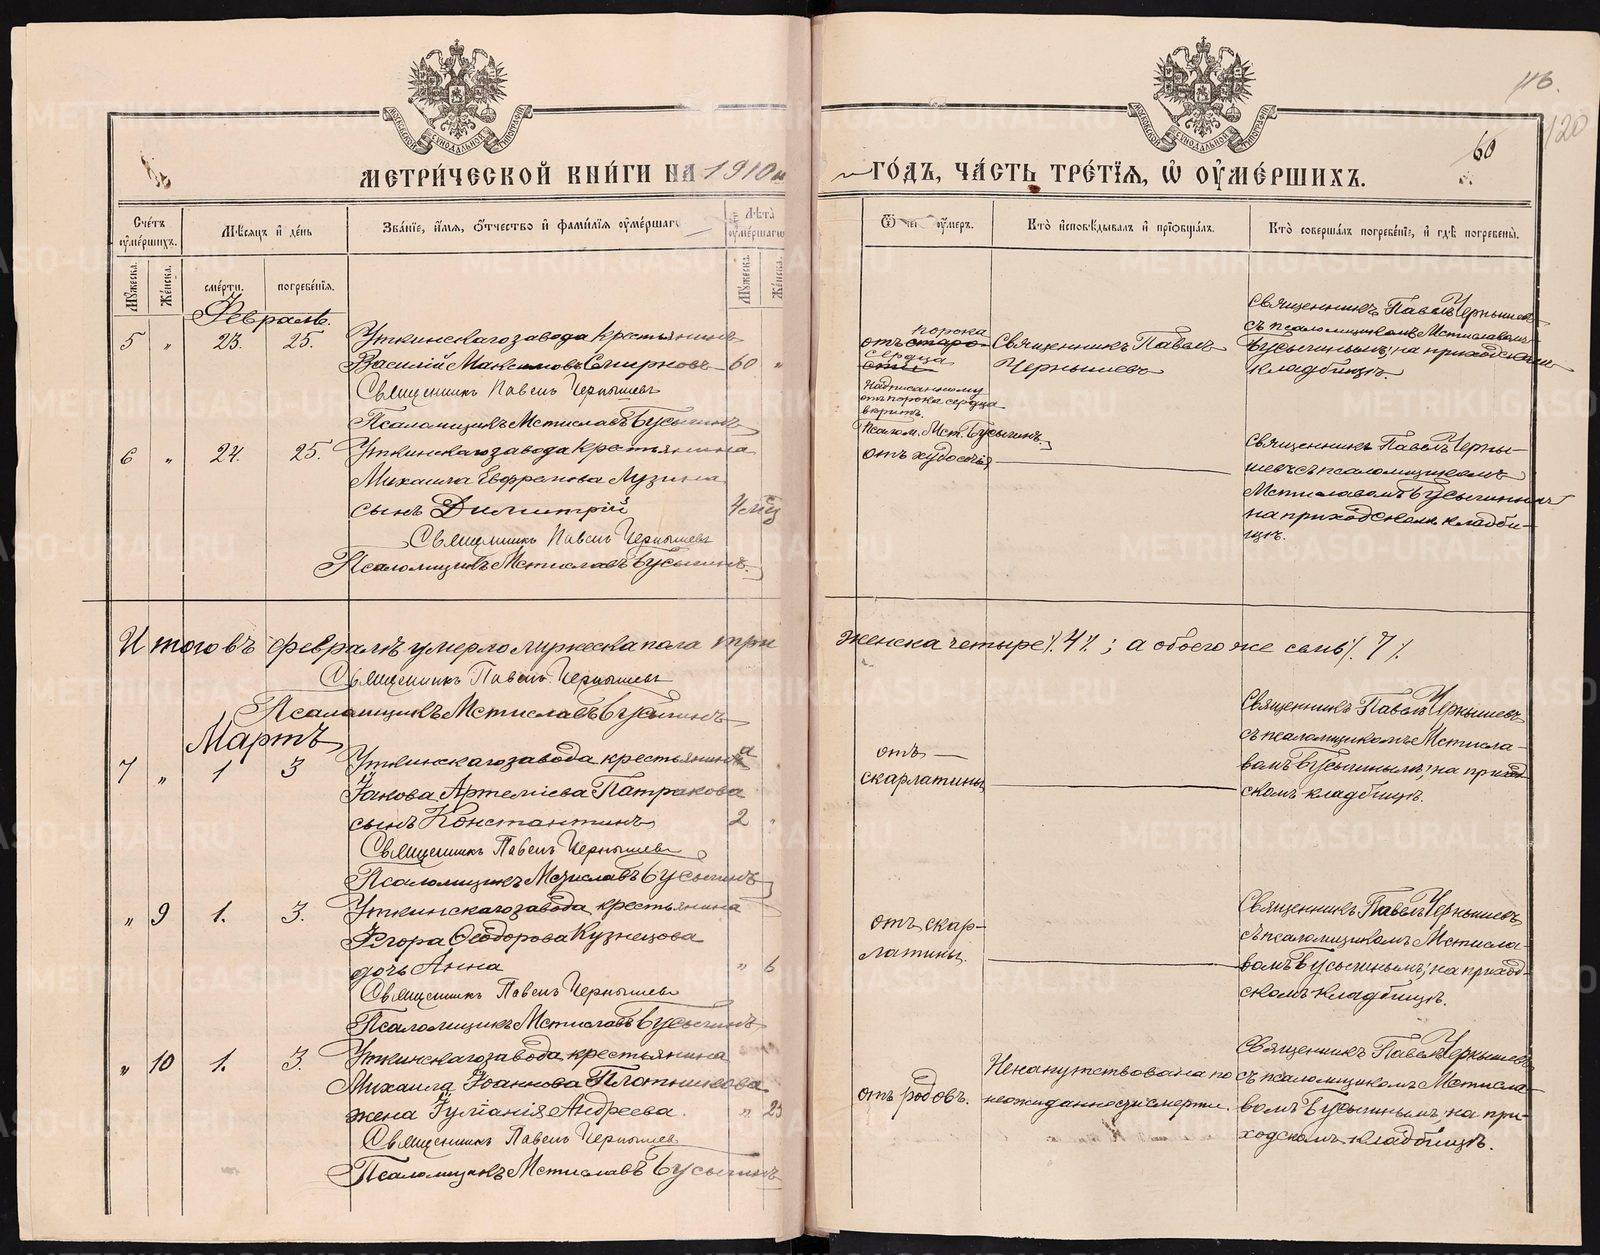 116.
120
60
МЕТРИ́ЧЕСКОЙ КНИ́ГИ НА 1910 й
ГО́ДЪ, ЧА́СТЬ ТРЕ́ТІѦ, Ѡ҆ ОУ҆МЕ́РШИХЪ.
Сче́тъ оу҆ме́ршихъ.
Мѣ́сяцъ и҆ де́нь
Зва́нїе, и҆́мя, ѻ҆́тчество и҆ фами́лїя оу҆ме́ршагѡ
Лѣ́та оу҆ме́ршагѡ
оу҆́меръ.
Кто̀ и҆сповѣ́дывалъ и҆ прїѡбща́лъ.
Кто̀ соверша́лъ погребе́нїе, и҆ гдѣ̀ погребены̀.
Мꙋ́жеска.
Же́нска.
сме́рти.
погребе́нїя.
Мꙋ́жеска.
Же́нска.
Февраль.
5 " 23. 25.
Уткинскаго завода крестьянинъ
Василій Максимовъ Смирновъ 60 "
Священникъ Павелъ Чернышевъ
Псаломщикъ Мстиславъ Бусыгинъ
порока
отъ старо-
сердца
сти
Надписанному
отъ порока сердца
вѣрить.
Псалом. Мст. Бусыгинъ.
Священникъ Павелъ
Чернышевъ
Священникъ Павелъ Чернышевъ
съ псаломщикомъ Мстиславомъ
Бусыгинымъ; на приходскомъ
кладбищѣ.
6 " 24. 25.
Уткинскаго завода крестьянина
Михаила Евфремова Лузина
сынъ Димитрій 4 мѣц
Священникъ Павелъ Чернышевъ
Псаломщикъ Мстиславъ Бусыгинъ.
отъ худосочія
Священникъ Павелъ Черны-
шевъ съ псаломщикомъ
Мстиславомъ Бусыгинымъ
на приходскомъ кладби-
щѣ.
Итого въ февралѣ умерло мужеска пола три
женска четыре ٪ 4 ٪ ; а обоего же семь ٪ 7 ٪
Священникъ Павелъ Чернышевъ
Псаломщикъ Мстиславъ Бусыгинъ
Мартъ
7 " 1 3
Уткинскаго завода крестьянина
Іакова Артеміева Патракова
сынъ Константинъ 2 "
Священникъ Павелъ Чернышевъ
Псаломщикъ Мстиславъ Бусыгинъ
отъ —
скарлатины
Священникъ Павелъ Чернышевъ
съ псаломщикомъ Мстисла-
вомъ Бусыгинымъ; на приход-
скомъ кладбищѣ.
" 9 1. 3.
Уткинскаго завода крестьянина
Егора Ѳеодорова Кузнецова
дочь Анна " 6
Священникъ Павелъ Чернышевъ
Псаломщикъ Мстиславъ Бусыгинъ
отъ скар-
латины.
Священникъ Павелъ Чернышевъ
съ псаломщикомъ Мстисла-
вомъ Бусыгинымъ; на приход-
скомъ кладбищѣ.
" 10 1. 3.
Уткинскаго завода крестьянина
Михаила Іоаннова Плотникова
жена Іуліанія Андреева. "
Священникъ Павелъ Чернышев
Псаломщикъ Мстиславъ Бусыгинъ
отъ родовъ.
Ненапутствована по
неожиданности смерти.
Священникъ Павелъ Чернышевъ
съ псаломщикомъ Мстисла-
вомъ Бусыгинымъ, на при-
ходскомъ кладбищѣ.
METRIKI.GASO-URAL.RU